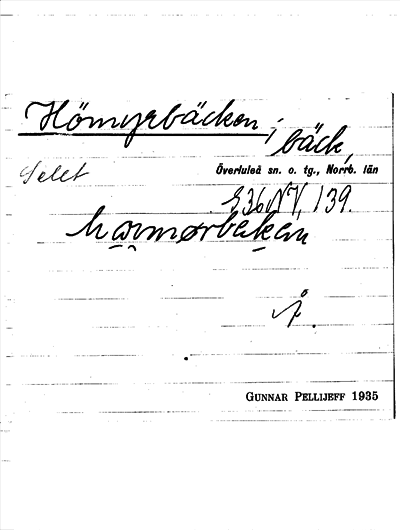 Hömyrbäcken; bäck,
Selet
Överluleå sn. o. tg., Norrb. län
S36NV, 139.
Å.
GUNNAR PELLIJEFF 1935